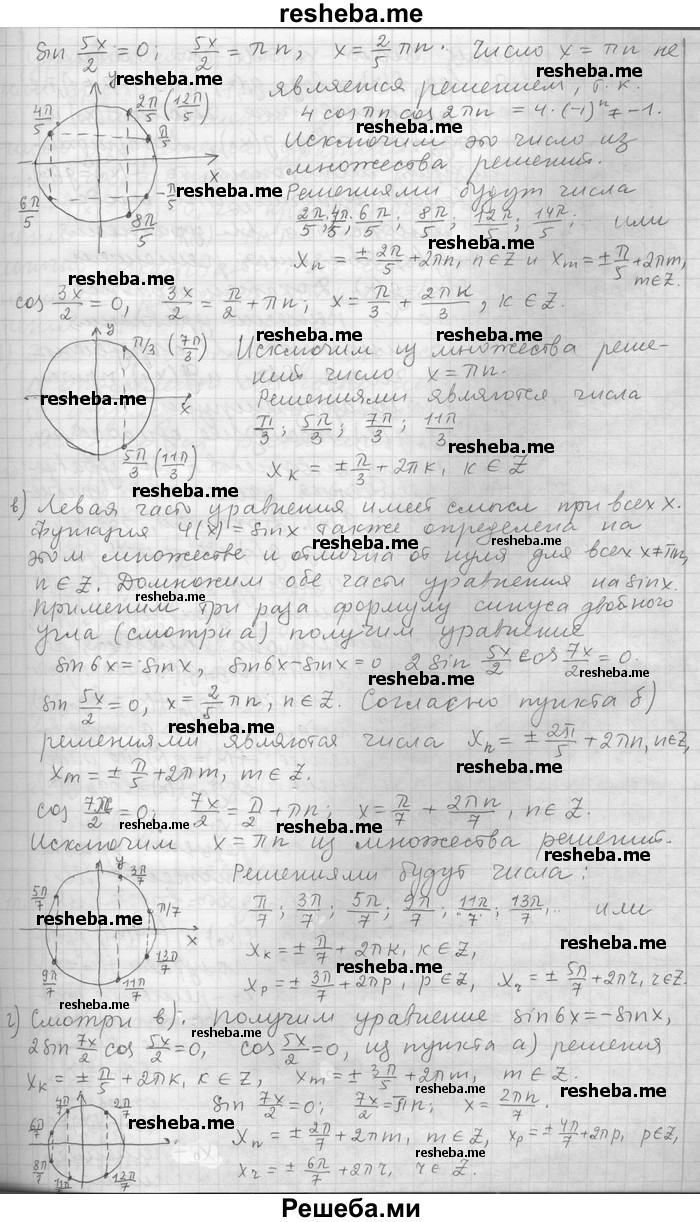 resheba.me
sin 5x/2 = 0; 5x/2 = πn, x = 2/5 πn. Число x = πn не
является решением, т.к.
4 cos πn cos 2πn = 4·(-1)ⁿ ≠ -1.
Исключим это число из
множества решений.
Решениями будут числа
2π/5; 4π/5; 6π/5; 8π/5; 12π/5; 14π/5; или
xₙ = ± 2π/5 + 2πn, n∈Z и xₘ = ± π/5 + 2πm,
m∈Z.
y
4π/5
2π/5 (12π/5)
π/5
x
-π/5
6π/5
8π/5
cos 3x/2 = 0, 3x/2 = π/2 + πn; x = π/3 + 2πk/3, k∈Z.
y
π/3 (7π/3)
x
5π/3 (11π/3)
Исключим из множества реше-
ний число x = πn.
Решениями являются числа
π/3; 5π/3; 7π/3; 11π/3
xₖ = ± π/3 + 2πk, k∈Z
в) Левая часть уравнения имеет смысл при всех x.
Функция φ(x) = sinx также определена на
этом множестве и отлична от нуля для всех x≠πn,
n∈Z. Домножим обе части уравнения на sinx.
Применим три раза формулу синуса двойного
угла (смотри а) получим уравнение
sin6x = sinx, sin6x - sinx = 0 2 sin 5x/2 cos 7x/2 = 0.
sin 5x/2 = 0, x = 2/5 πn, n∈Z. Согласно пункта б)
решениями являются числа xₙ = ± 2π/5 + 2πn, n∈Z,
xₘ = ± π/5 + 2πm, m∈Z.
cos 7x/2 = 0; 7x/2 = π/2 + πn; x = π/7 + 2πn/7, n∈Z.
Исключим x = πn из множества решений.
y
3π/7
5π/7
π/7
x
9π/7
13π/7
11π/7
Решениями будут числа:
π/7; 3π/7; 5π/7; 9π/7; 11π/7; 13π/7, или
xₖ = ± π/7 + 2πk, k∈Z,
xₚ = ± 3π/7 + 2πp, p∈Z, xᵣ = ± 5π/7 + 2πr, r∈Z.
г) Смотри в). получим уравнение sin6x = -sinx,
2sin 7x/2 cos 5x/2 = 0, cos 5x/2 = 0, из пункта а) решения
xₖ = ± π/5 + 2πk, k∈Z, xₘ = ± 3π/5 + 2πm, m∈Z.
sin 7x/2 = 0; 7x/2 = πn; x = 2πn/7.
xₙ = ± 2π/7 + 2πm, m∈Z, xₚ = ± 4π/7 + 2πp, p∈Z,
xᵣ = ± 6π/7 + 2πr, r∈Z.
4π/7
2π/7
6π/7
8π/7
12π/7
Решеба.ми